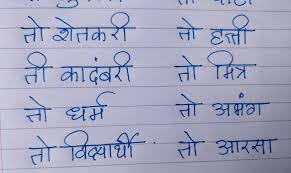 तो शेतकरी तो हत्ती
ती कादंबरी तो मित्र
तो धर्म तो अभंग
तो विद्यार्थी तो आरसा